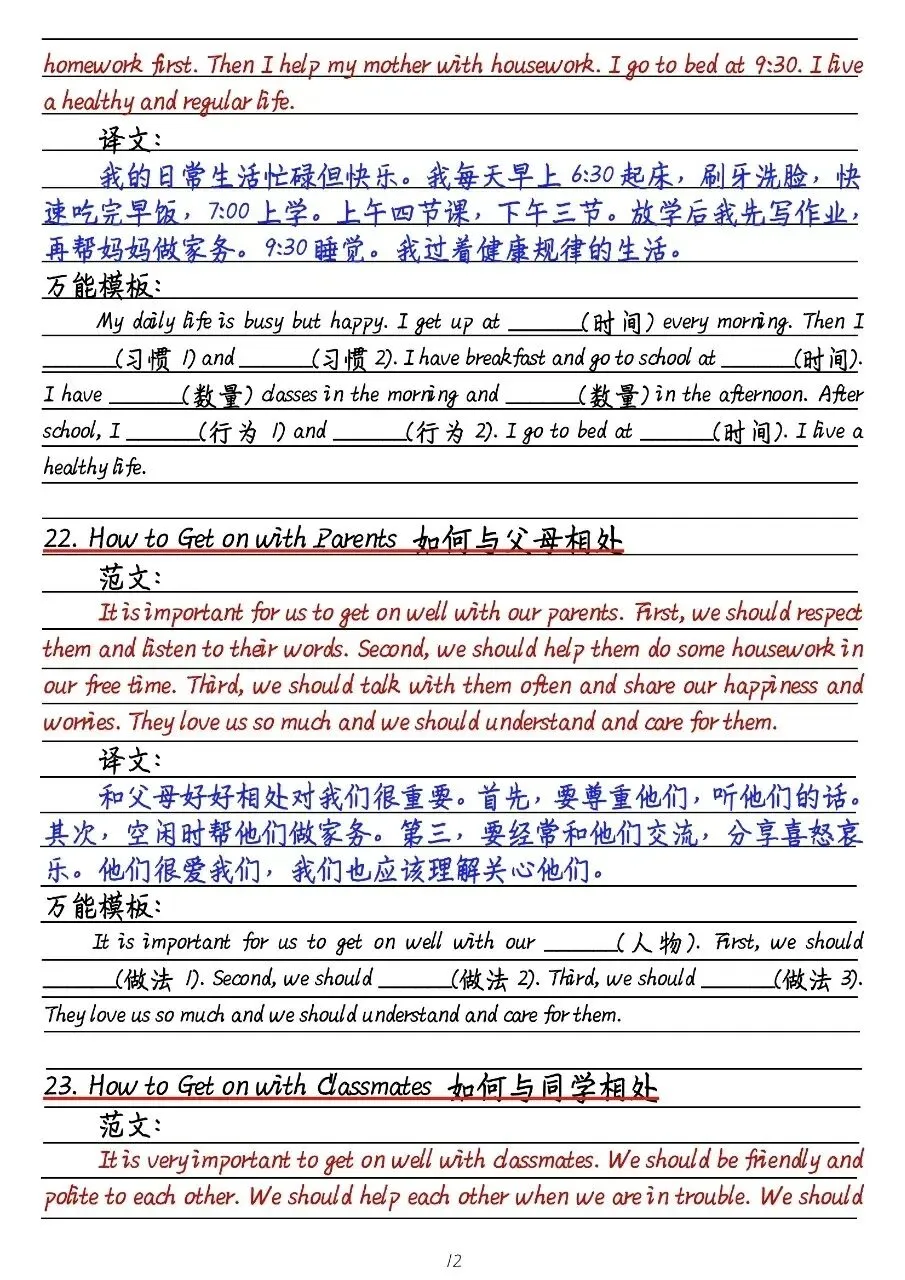 homework first. Then I help my mother with housework. I go to bed at 9:30. I live
a healthy and regular life.
译文：
我的日常生活忙碌但快乐。我每天早上 6:30 起床，刷牙洗脸，快
速吃完早饭，7:00 上学。上午四节课，下午三节。放学后我先写作业，
再帮妈妈做家务。9:30 睡觉。我过着健康规律的生活。
万能模板：
My daily life is busy but happy. I get up at ______(时间) every morning. Then I
______(习惯 1) and ______(习惯 2). I have breakfast and go to school at ______(时间).
I have ______(数量) classes in the morning and ______(数量) in the afternoon. After
school, I ______(行为 1) and ______(行为 2). I go to bed at ______(时间). I live a
healthy life.
22. How to Get on with Parents 如何与父母相处
范文：
It is important for us to get on well with our parents. First, we should respect
them and listen to their words. Second, we should help them do some housework in
our free time. Third, we should talk with them often and share our happiness and
worries. They love us so much and we should understand and care for them.
译文：
和父母好好相处对我们很重要。首先，要尊重他们，听他们的话。
其次，空闲时帮他们做家务。第三，要经常和他们交流，分享喜怒哀
乐。他们很爱我们，我们也应该理解关心他们。
万能模板：
It is important for us to get on well with our ______(人物). First, we should
______(做法 1). Second, we should ______(做法 2). Third, we should ______(做法 3).
They love us so much and we should understand and care for them.
23. How to Get on with Classmates 如何与同学相处
范文：
It is very important to get on well with classmates. We should be friendly and
polite to each other. We should help each other when we are in trouble. We should
12